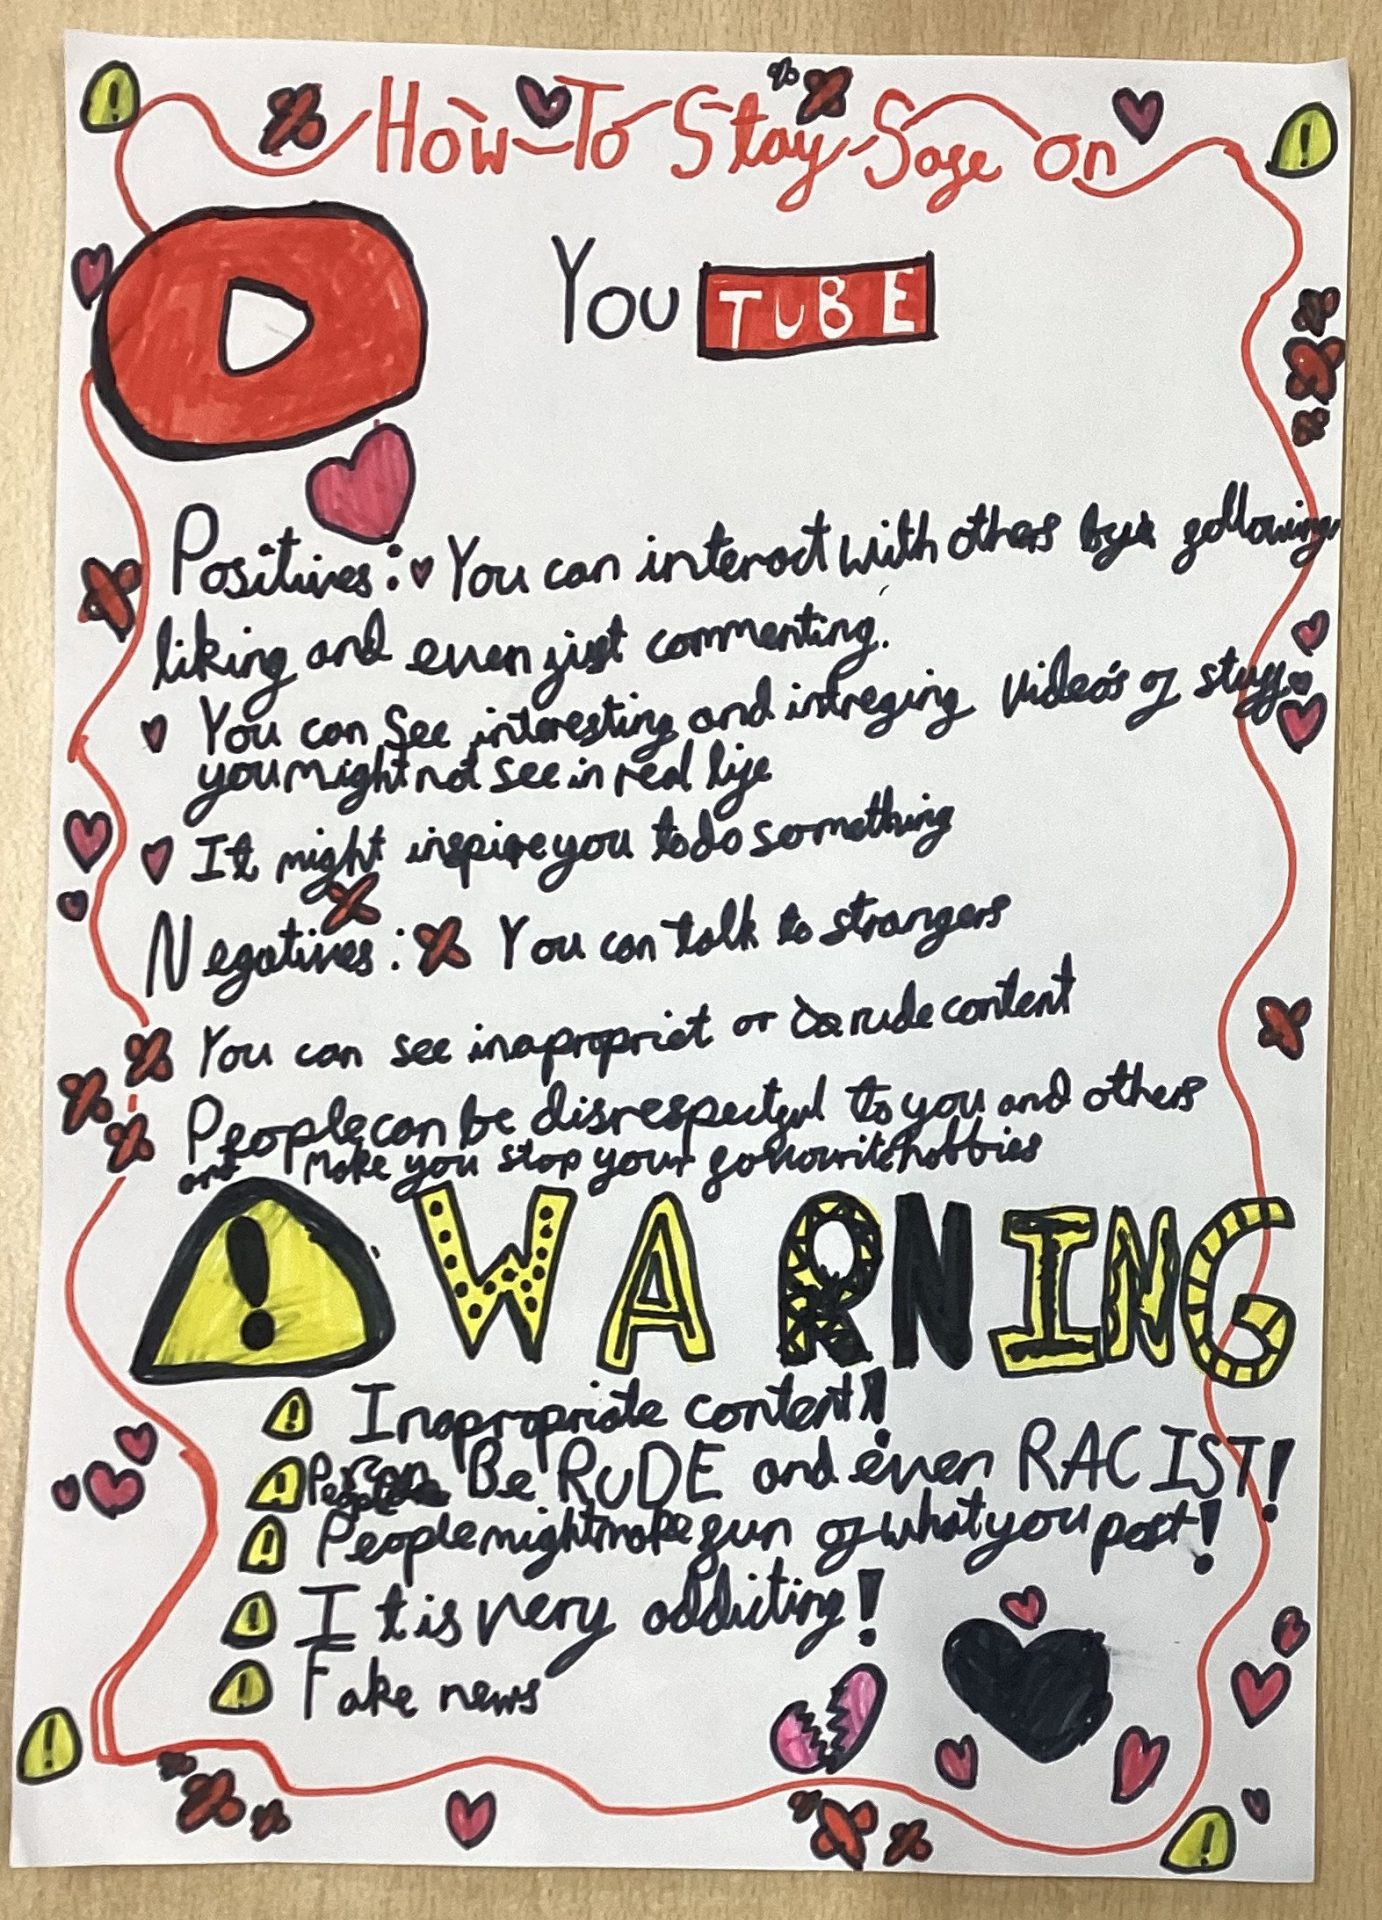 How To Stay Safe on
You TUBE
Positives: You can interact with others by following
liking and even just commenting.
You can See interesting and intreging video's of stuff
you might not see in real life
It might inspire you to do something
Negatives: You can talk to strangers
You can see inapropriet or rude content
People can be disrespectful to you and others
and make you stop your favourite hobbies
WARNING
Inapropriate content!
People can Be RUDE and even RACIST!
People might make fun of what you post!
It is very addicting!
Fake news